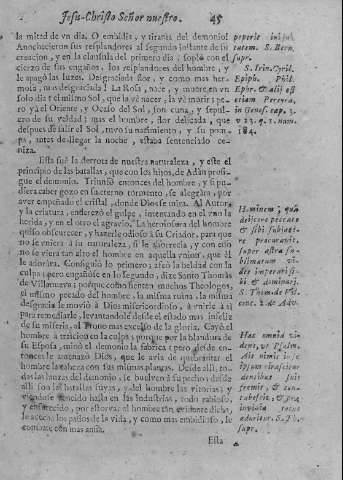 Jesu-Christo Señor nuestro. 45
la mitad de vn dia. O embidia, y tirania del demonio!
Anochecieron sus resplandores al segundo instante de su
creacion, y en la clausula del primero dia; soplò con el
cierzo de sus engaños, los resplandores del hombre, y
le apagò las luzes. Desgraciada flor, y como mas her-
mosa, mas desgraciada! La Rosa, nace, y muere en vn
solo dia; el mismo Sol, que la vè nacer, la vè morir; pe-
ro ya el Oriente, y Ocaso del Sol, son cuna, y sepul-
cro de su verdad; mas el hombre, flor delicada, que
despues de salir el Sol, tuvo su nacimiento, y su pom-
pa, antes de llegar la noche, estaba sentenciado ce-
niza.
Esta fuè la derrota de nuestra naturaleza, y este el
principio de las batallas, que con los hijos, de Adàn prosi-
gue el demonio. Triunfò entonces del hombre, y su pu-
diera caber gozo en su eterno tormento, se alegràra, por
aver empeñado el cristal, donde Dios se mira. Al Autor,
y la criatura, enderezò el golpe, intentando en el vno la
herida, y en el otro el agravio. La hermosura del hombre
quiso obscurecer, y hazerle odioso à su Criador, para que
no se vniera à su naturaleza, si le aborrecia, y con esto
no se viera tan alto el hombre en aquella vnion, que èl
le adorára. Consiguiò lo primero; afeò la beldad con la
culpa; pero engañòse en lo segundo, dize Santo Tomàs
de Villanueva; porque como sienten muchos Theologos,
el mismo pecado del hombre, la misma ruina, la misma
desgracia le moviò à Dios misericordioso, à vnirle à si
para remediarle, levantandole desde el estado mas infeliz
de su miseria, al Trono mas excelso de la gloria. Cayò el
hombre à traicion en la culpa; porque por la blandura de
su Esposa, minò el demonio la fabrica; pero desde en-
tonces le amenazò Dios, que le avia de quebrantar el
hombre la cabeza con sus mismas plantas. Desde alli, to-
das las lanzas del demonio, le buelven à su pecho; desde
alli son las batallas suyas, y del hombre las vitorias; y
viendose vencido hasta en las industrias, todo rabioso,
y enfurecido, por estorvar al hombre tan evidente dicha,
le acecha los passos de la vida, y como mas embidioso, le
combate con mas ansia.
Esta
peperit inhu-
S. Bern.
supr.
S. Irin. Cyril.
Epiph. Phil.
Ephr. & alij
Pereyra,
in Genes. cap. 3.
v. 23. q. 1. num.
184.
Hominem; quē
dejicere peccato
& sibi subiace-
re procuravit,
super astra su-
blimatum vi-
dit imperantē si-
bi & dominari.
S. Thom. de Vil.
conc. 2. de Adv.
Hac omnia vi-
dens, vt Psalm.
Ait nimis in se
ipsum irascitur
dentibus suis
fremit, & con-
tabescit, & præ
invidia totus
aduritur. S. Th.
supr.